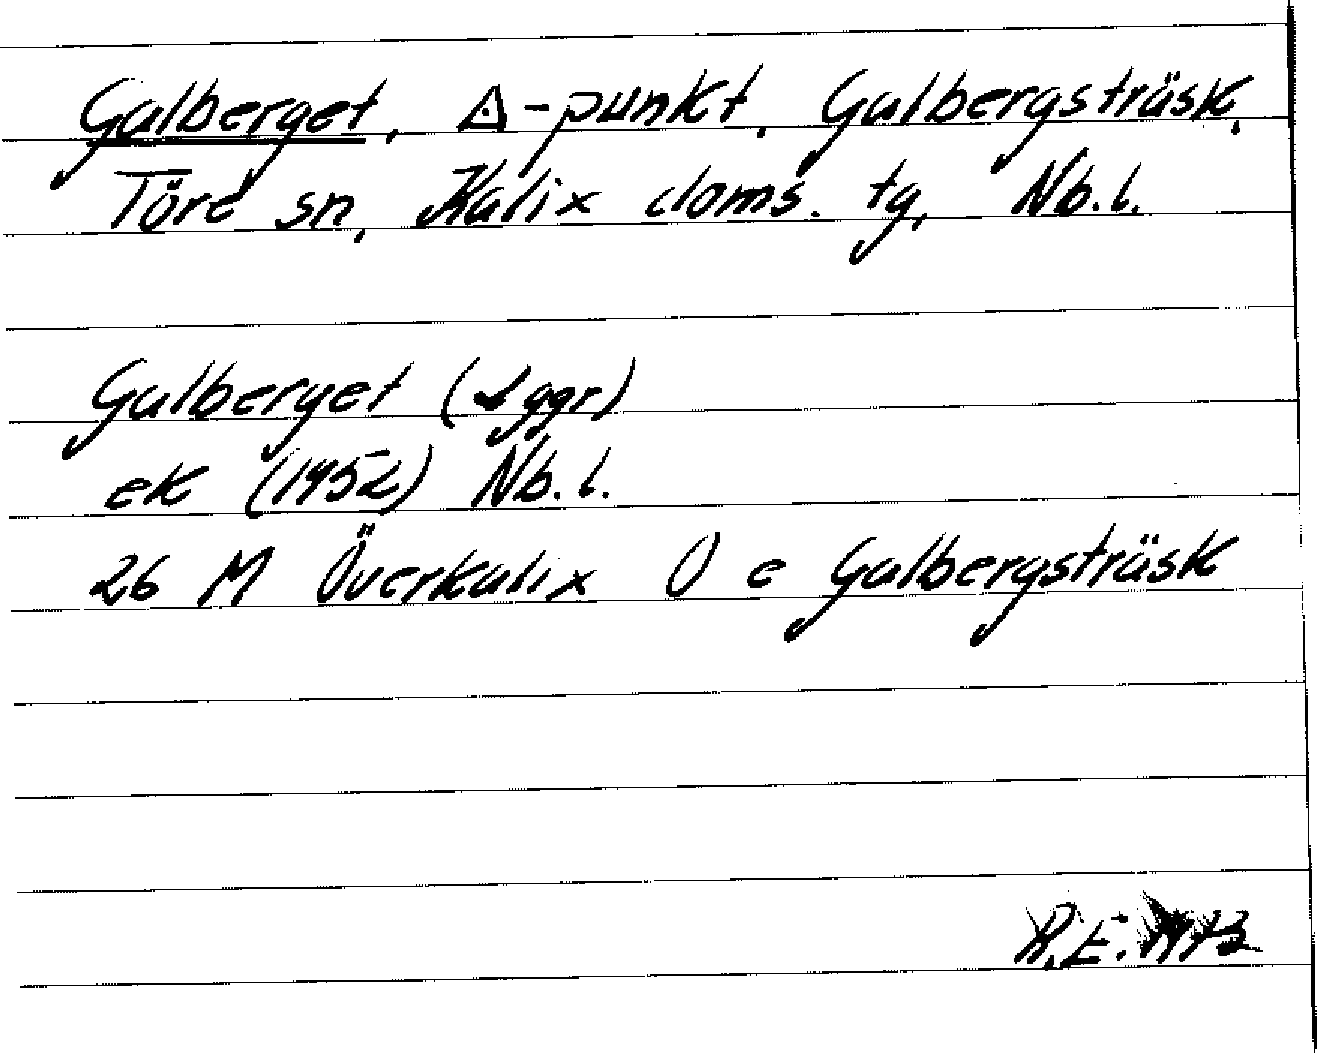 Galberget, △-punkt, Galbergsträsk,
Töre sn, Kalix doms. tg, Nb.l.
Galberget ( ggr)
ek (1952) Nb.l.
26 M Överkalix O e Galbergsträsk
R.E. 1973